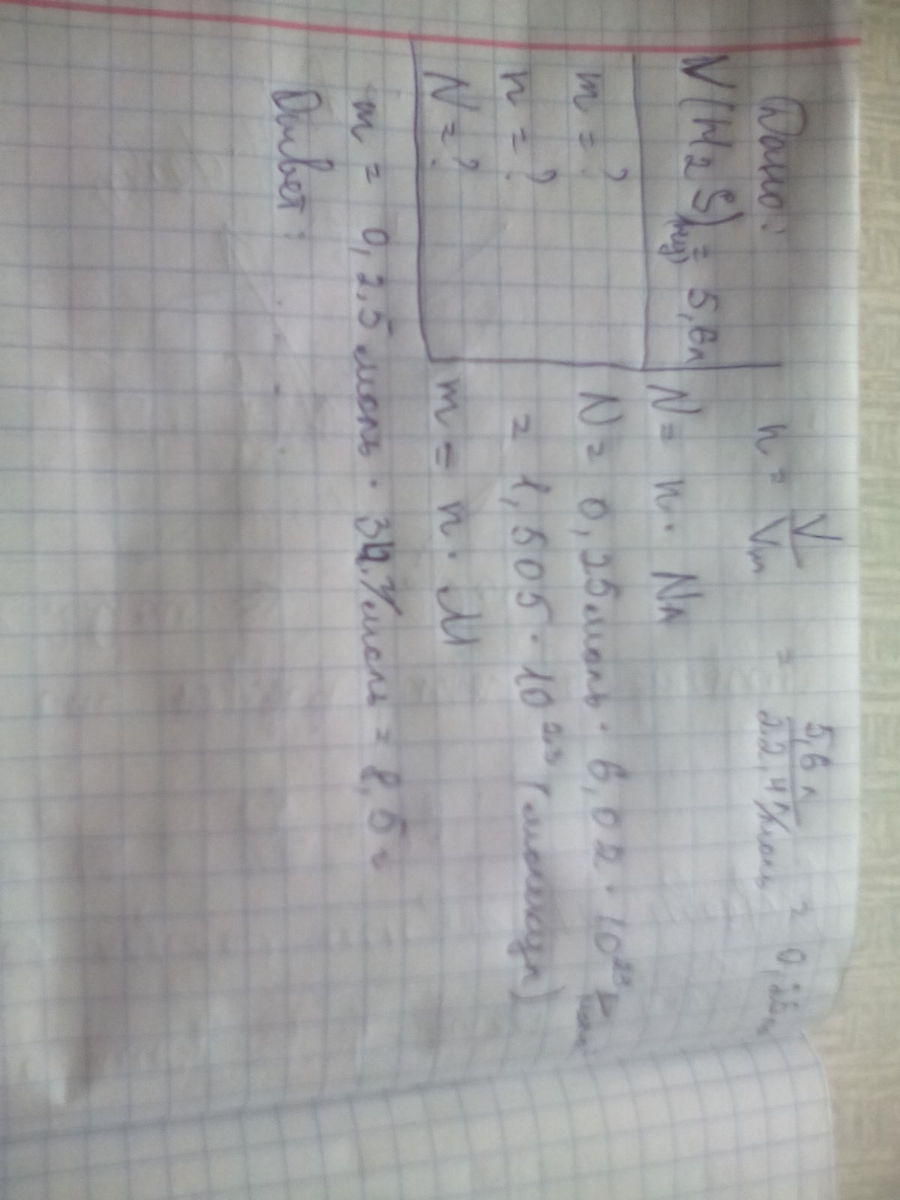 Дано:
V(H2S)(н.у) = 5,6л
m = ?
n = ?
N = ?
n = V/Vm = 5,6 л/22,4 л/моль = 0,25 м
N = n · NA
N = 0,25 моль · 6,02 · 10²³ 1/моль
= 1,505 · 10²³ (молекул)
m = n · M
m = 0,2,5 моль · 34 г/моль = 8,5 г
Ответ: